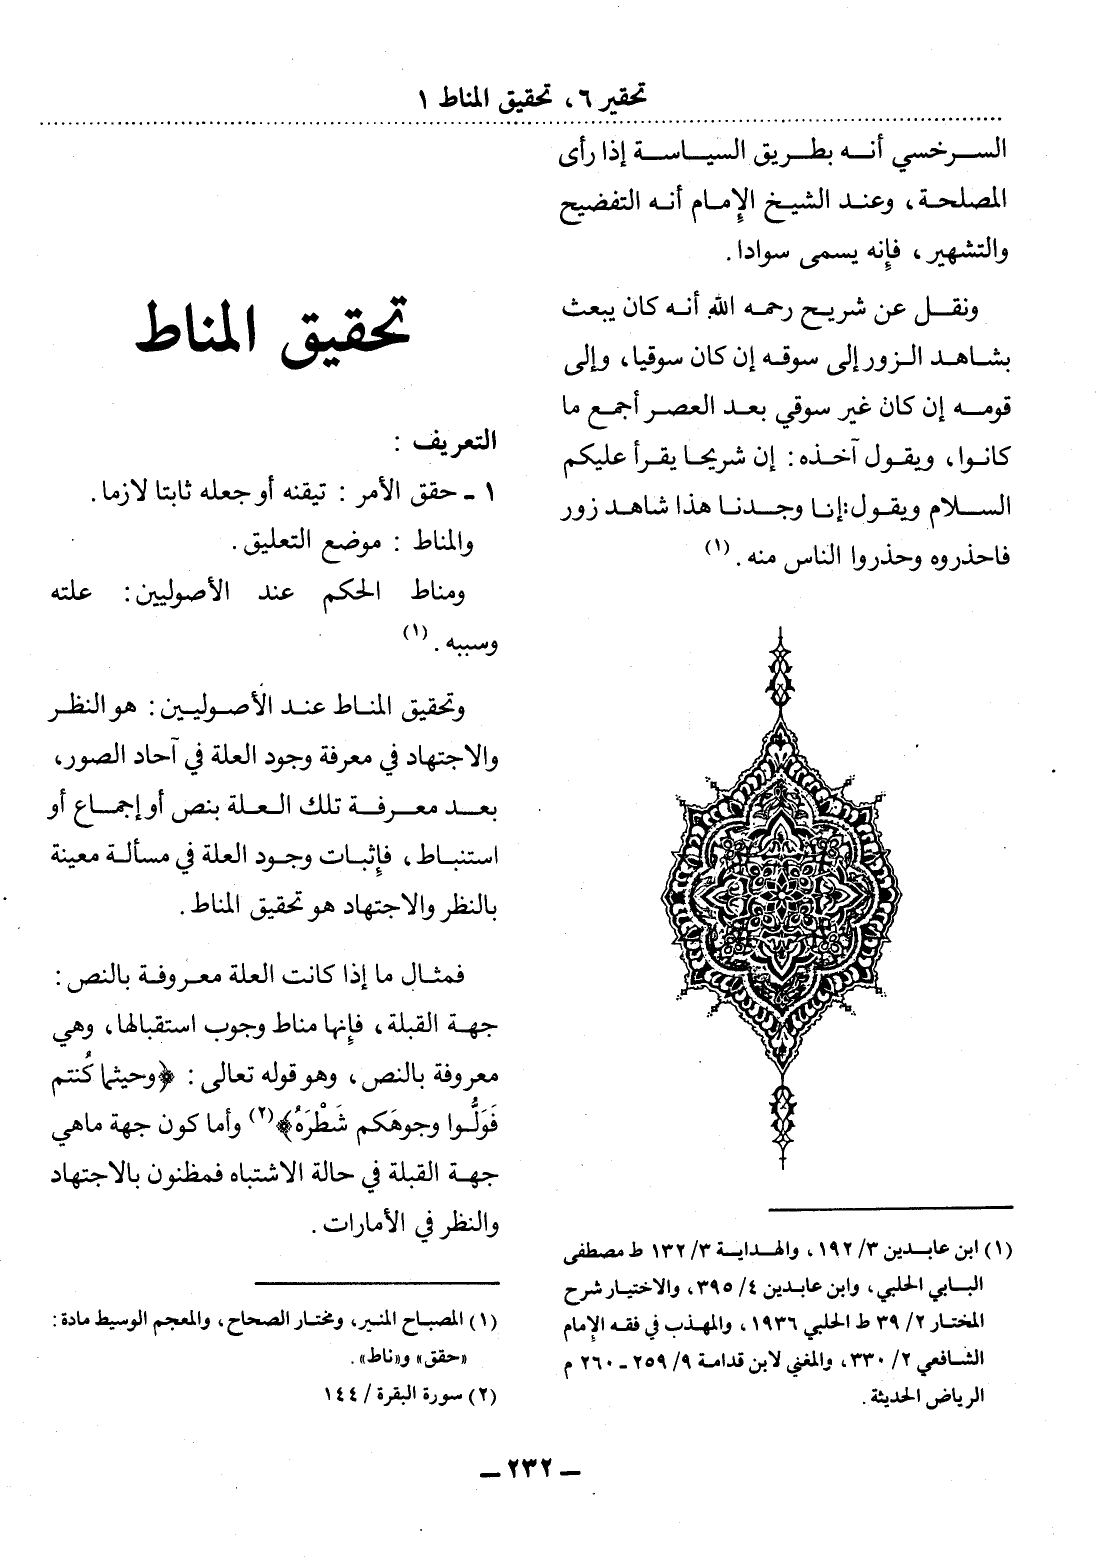 تحقير ٦، تحقيق المناط ١
السرخسي أنه بطريق السياسة إذا رأى
المصلحة، وعند الشيخ الإمام أنه التفضيح
والتشهير، فإنه يسمى سوادا.
ونقل عن شريح رحمه الله أنه كان يبعث
بشاهد الزور إلى سوقه إن كان سوقيا، وإلى
قومه إن كان غير سوقي بعد العصر أجمع ما
كانوا، ويقول آخذه: إن شريحا يقرأ عليكم
السلام ويقول: إنا وجدنا هذا شاهد زور
فاحذروه وحذروا الناس منه. (١)
(١) ابن عابدين ٣/ ١٩٢، والهداية ٣/ ١٣٢ ط مصطفى
البابي الحلبي، وابن عابدين ٤/ ٣٩٥، والاختيار شرح
المختار ٢/ ٣٩ ط الحلبي ١٩٣٦، والمهذب في فقه الإمام
الشافعي ٢/ ٣٣٠، والمغني لابن قدامة ٩/ ٢٥٩ ـ ٢٦٠ م
الرياض الحديثة.
تحقيق المناط
التعريف :
١ ـ حقق الأمر : تيقنه أو جعله ثابتا لازما.
والمناط : موضع التعليق.
ومناط الحكم عند الأصوليين: علته
وسببه. (١)
وتحقيق المناط عند الأصوليين: هو النظر
والاجتهاد في معرفة وجود العلة في آحاد الصور،
بعد معرفة تلك العلة بنص أو إجماع أو
استنباط، فإثبات وجود العلة في مسألة معينة
بالنظر والاجتهاد هو تحقيق المناط.
فمثال ما إذا كانت العلة معروفة بالنص:
جهة القبلة، فإنها مناط وجوب استقبالها، وهي
معروفة بالنص، وهو قوله تعالى: ﴿وحيثما كُنتم
فَوَلُّوا وجوهَكم شَطْرَهُ﴾(٢) وأما كون جهة ماهي
جهة القبلة في حالة الاشتباه فمظنون بالاجتهاد
والنظر في الأمارات.
(١) المصباح المنير، ومختار الصحاح، والمعجم الوسيط مادة:
«حقق» و«ناط».
(٢) سورة البقرة / ١٤٤
ـ ٢٣٢ ـ